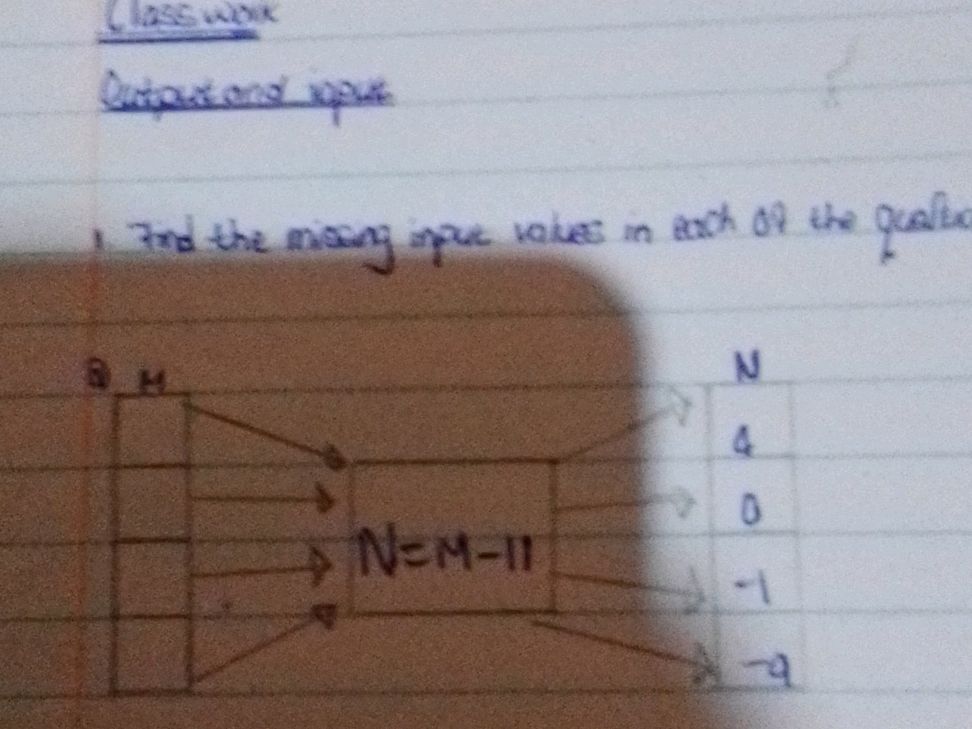 Classwork
Output and input
1 Find the missing input values in each of the
a M N
4
0
N=M-11
-1
-9